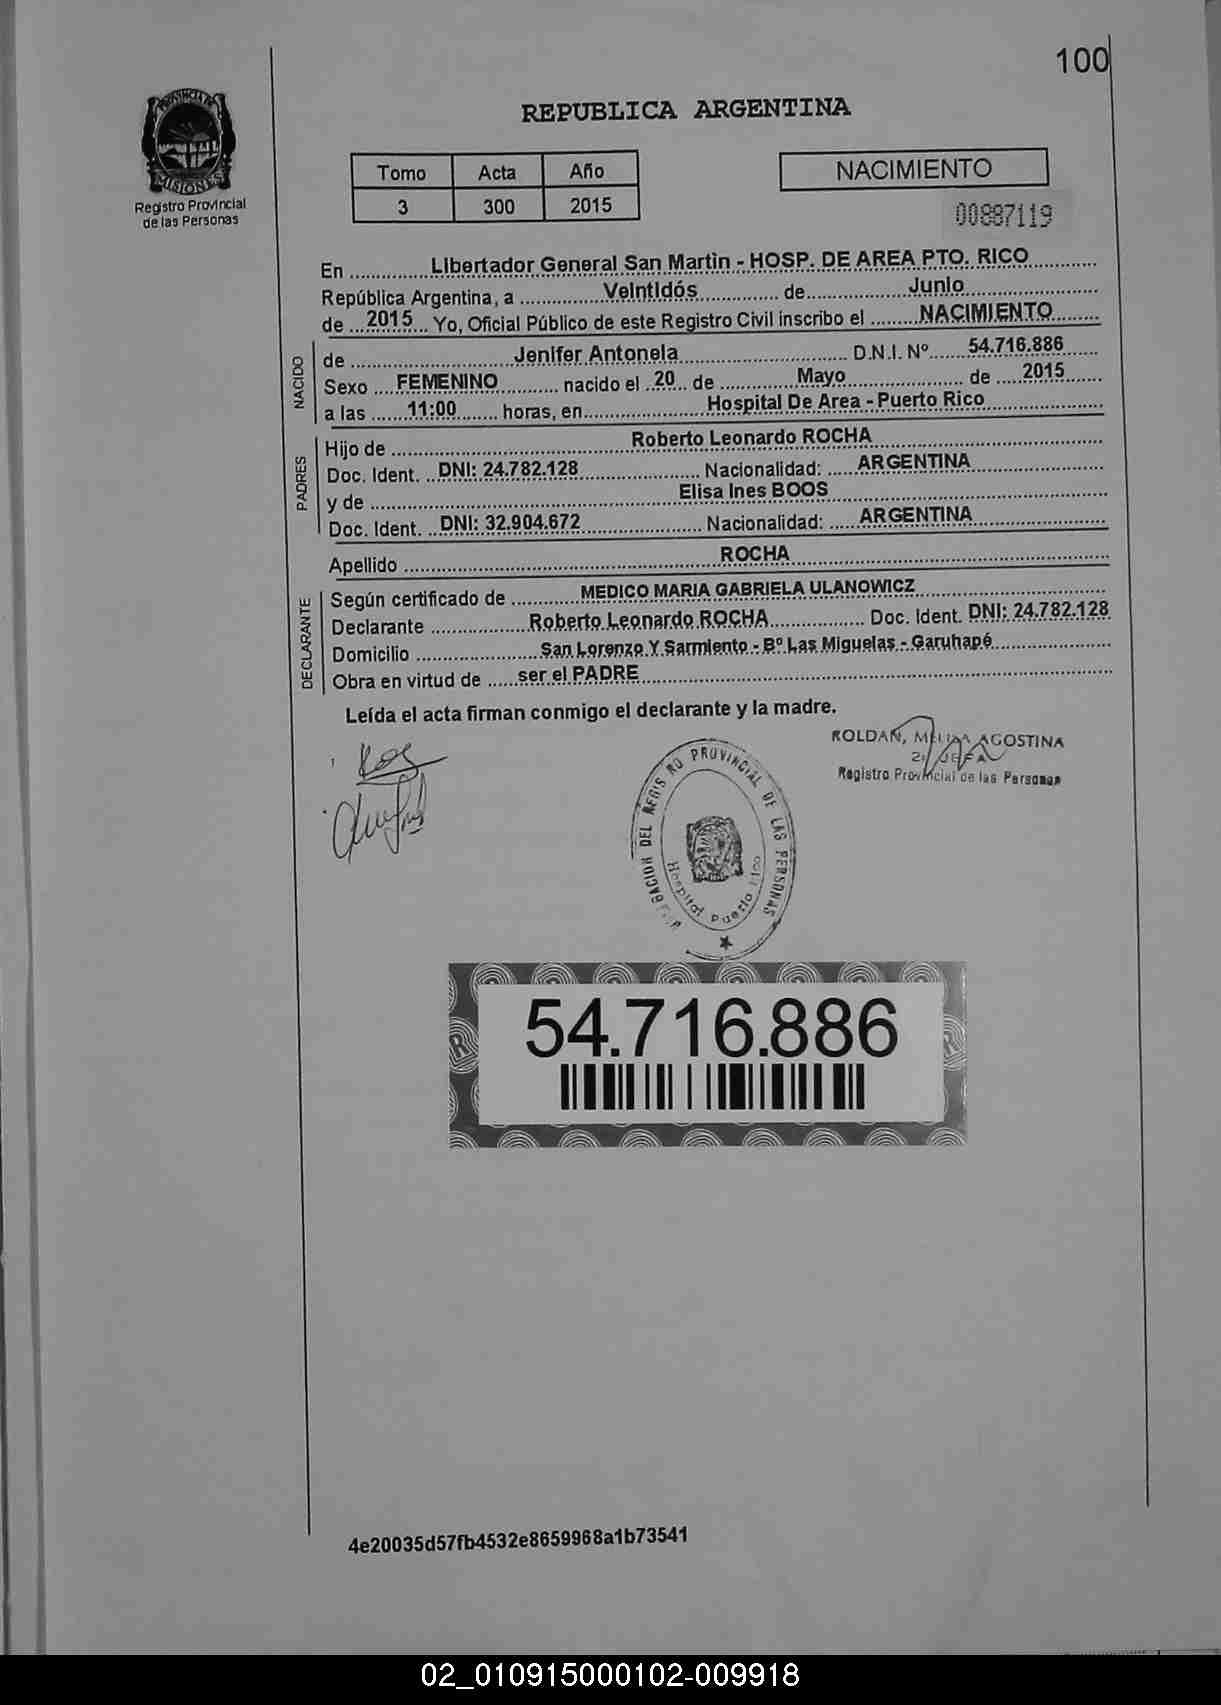 100
PROVINCIA DE
MISIONES
Registro Provincial
de las Personas
REPUBLICA ARGENTINA
Tomo Acta Año
3 300 2015
NACIMIENTO
00887119
En Libertador General San Martin - HOSP. DE AREA PTO. RICO
República Argentina, a Veintidós de Junio
de 2015 Yo, Oficial Público de este Registro Civil inscribo el NACIMIENTO
NACIDO
de Jenifer Antonela D.N.I. Nº 54.716.886
Sexo FEMENINO nacido el 20 de Mayo de 2015
a las 11:00 horas, en Hospital De Area - Puerto Rico
PADRES
Hijo de Roberto Leonardo ROCHA
Doc. Ident. DNI: 24.782.128 Nacionalidad: ARGENTINA
y de Elisa Ines BOOS
Doc. Ident. DNI: 32.904.672 Nacionalidad: ARGENTINA
Apellido ROCHA
DECLARANTE
Según certificado de MEDICO MARIA GABRIELA ULANOWICZ
Declarante Roberto Leonardo ROCHA Doc. Ident. DNI: 24.782.128
Domicilio San Lorenzo Y Sarmiento - Bº Las Miguelas - Garuhapé
Obra en virtud de ser el PADRE
Leída el acta firman conmigo el declarante y la madre.
ROLDAN, AGOSTINA
Registro Provincial de las Personas
DEL REGISTRO PROVINCIAL DE LAS PERSONAS
Hospital Puerto Rico
54.716.886
4e20035d57fb4532e8659968a1b73541
02_010915000102-009918